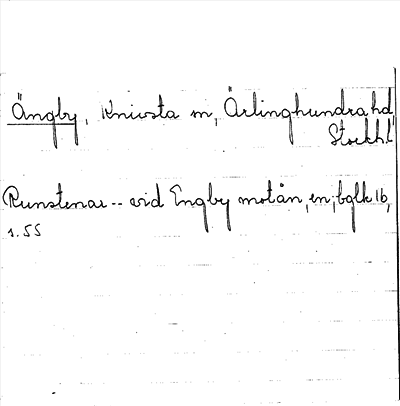 Ängby, Knivsta sn, Ärlinghundra hd,
Stockh.l
Runstenar -- vid Engby motån, en; bglk 1b,
s. 55